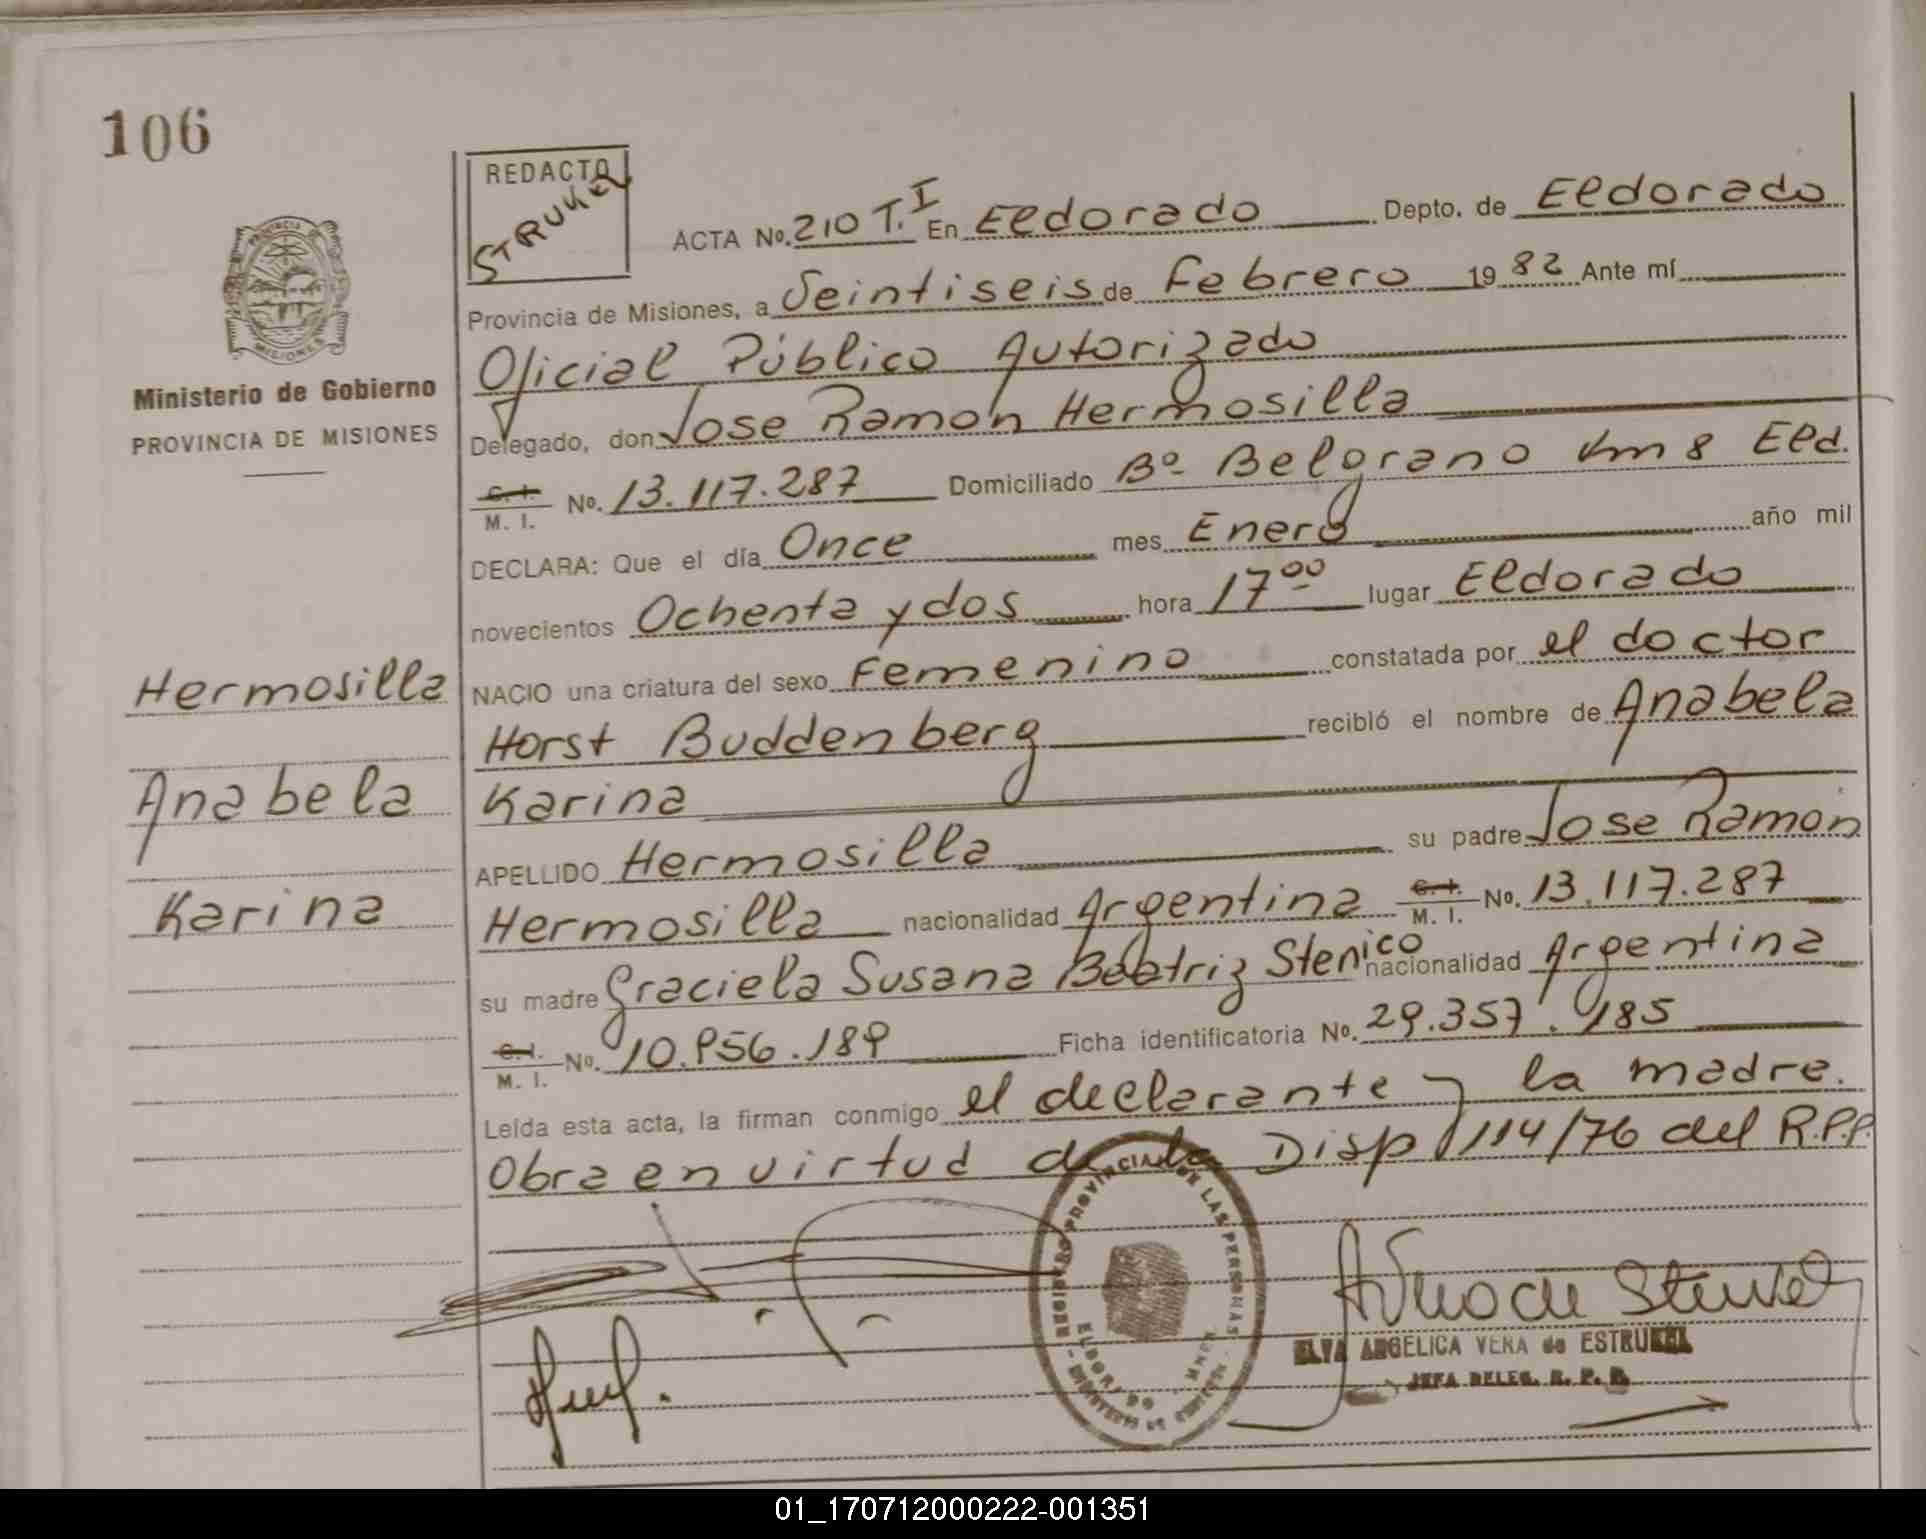 106
REDACTO
STRUKEL
PROVINCIA DE
MISIONES
Ministerio de Gobierno
PROVINCIA DE MISIONES
ACTA No. 210 T. I En Eldorado Depto. de Eldorado
Provincia de Misiones, a Veintiseis de Febrero 1982 Ante mí
Oficial Público Autorizado
Delegado, don Jose Ramon Hermosilla
C. I. M. I. No. 13.117.287 Domiciliado Bº Belgrano Km 8 Eld.
DECLARA: Que el día Once mes Enero año mil
novecientos Ochenta y dos hora 17 00 lugar Eldorado
Hermosilla
NACIO una criatura del sexo Femenino constatada por el doctor
Horst Buddenberg recibió el nombre de Anabela
Anabela
Karina
APELLIDO Hermosilla su padre Jose Ramon
Karina
Hermosilla nacionalidad Argentina C. I. M. I. No. 13.117.287
su madre Graciela Susana Beatriz Stenico nacionalidad Argentina
C. I. M. I. No. 10.956.189 Ficha identificatoria No. 29.357.185
Leída esta acta, la firman conmigo el declarante y la madre.
Obra en virtud de la Disp 114/76 del R.P.P.
REGISTRO PROVINCIAL DE LAS PERSONAS
ELDORADO
ELVA ANGELICA VERA de ESTRUKEL
JEFA DELEG. R. P. P.
01_170712000222-001351